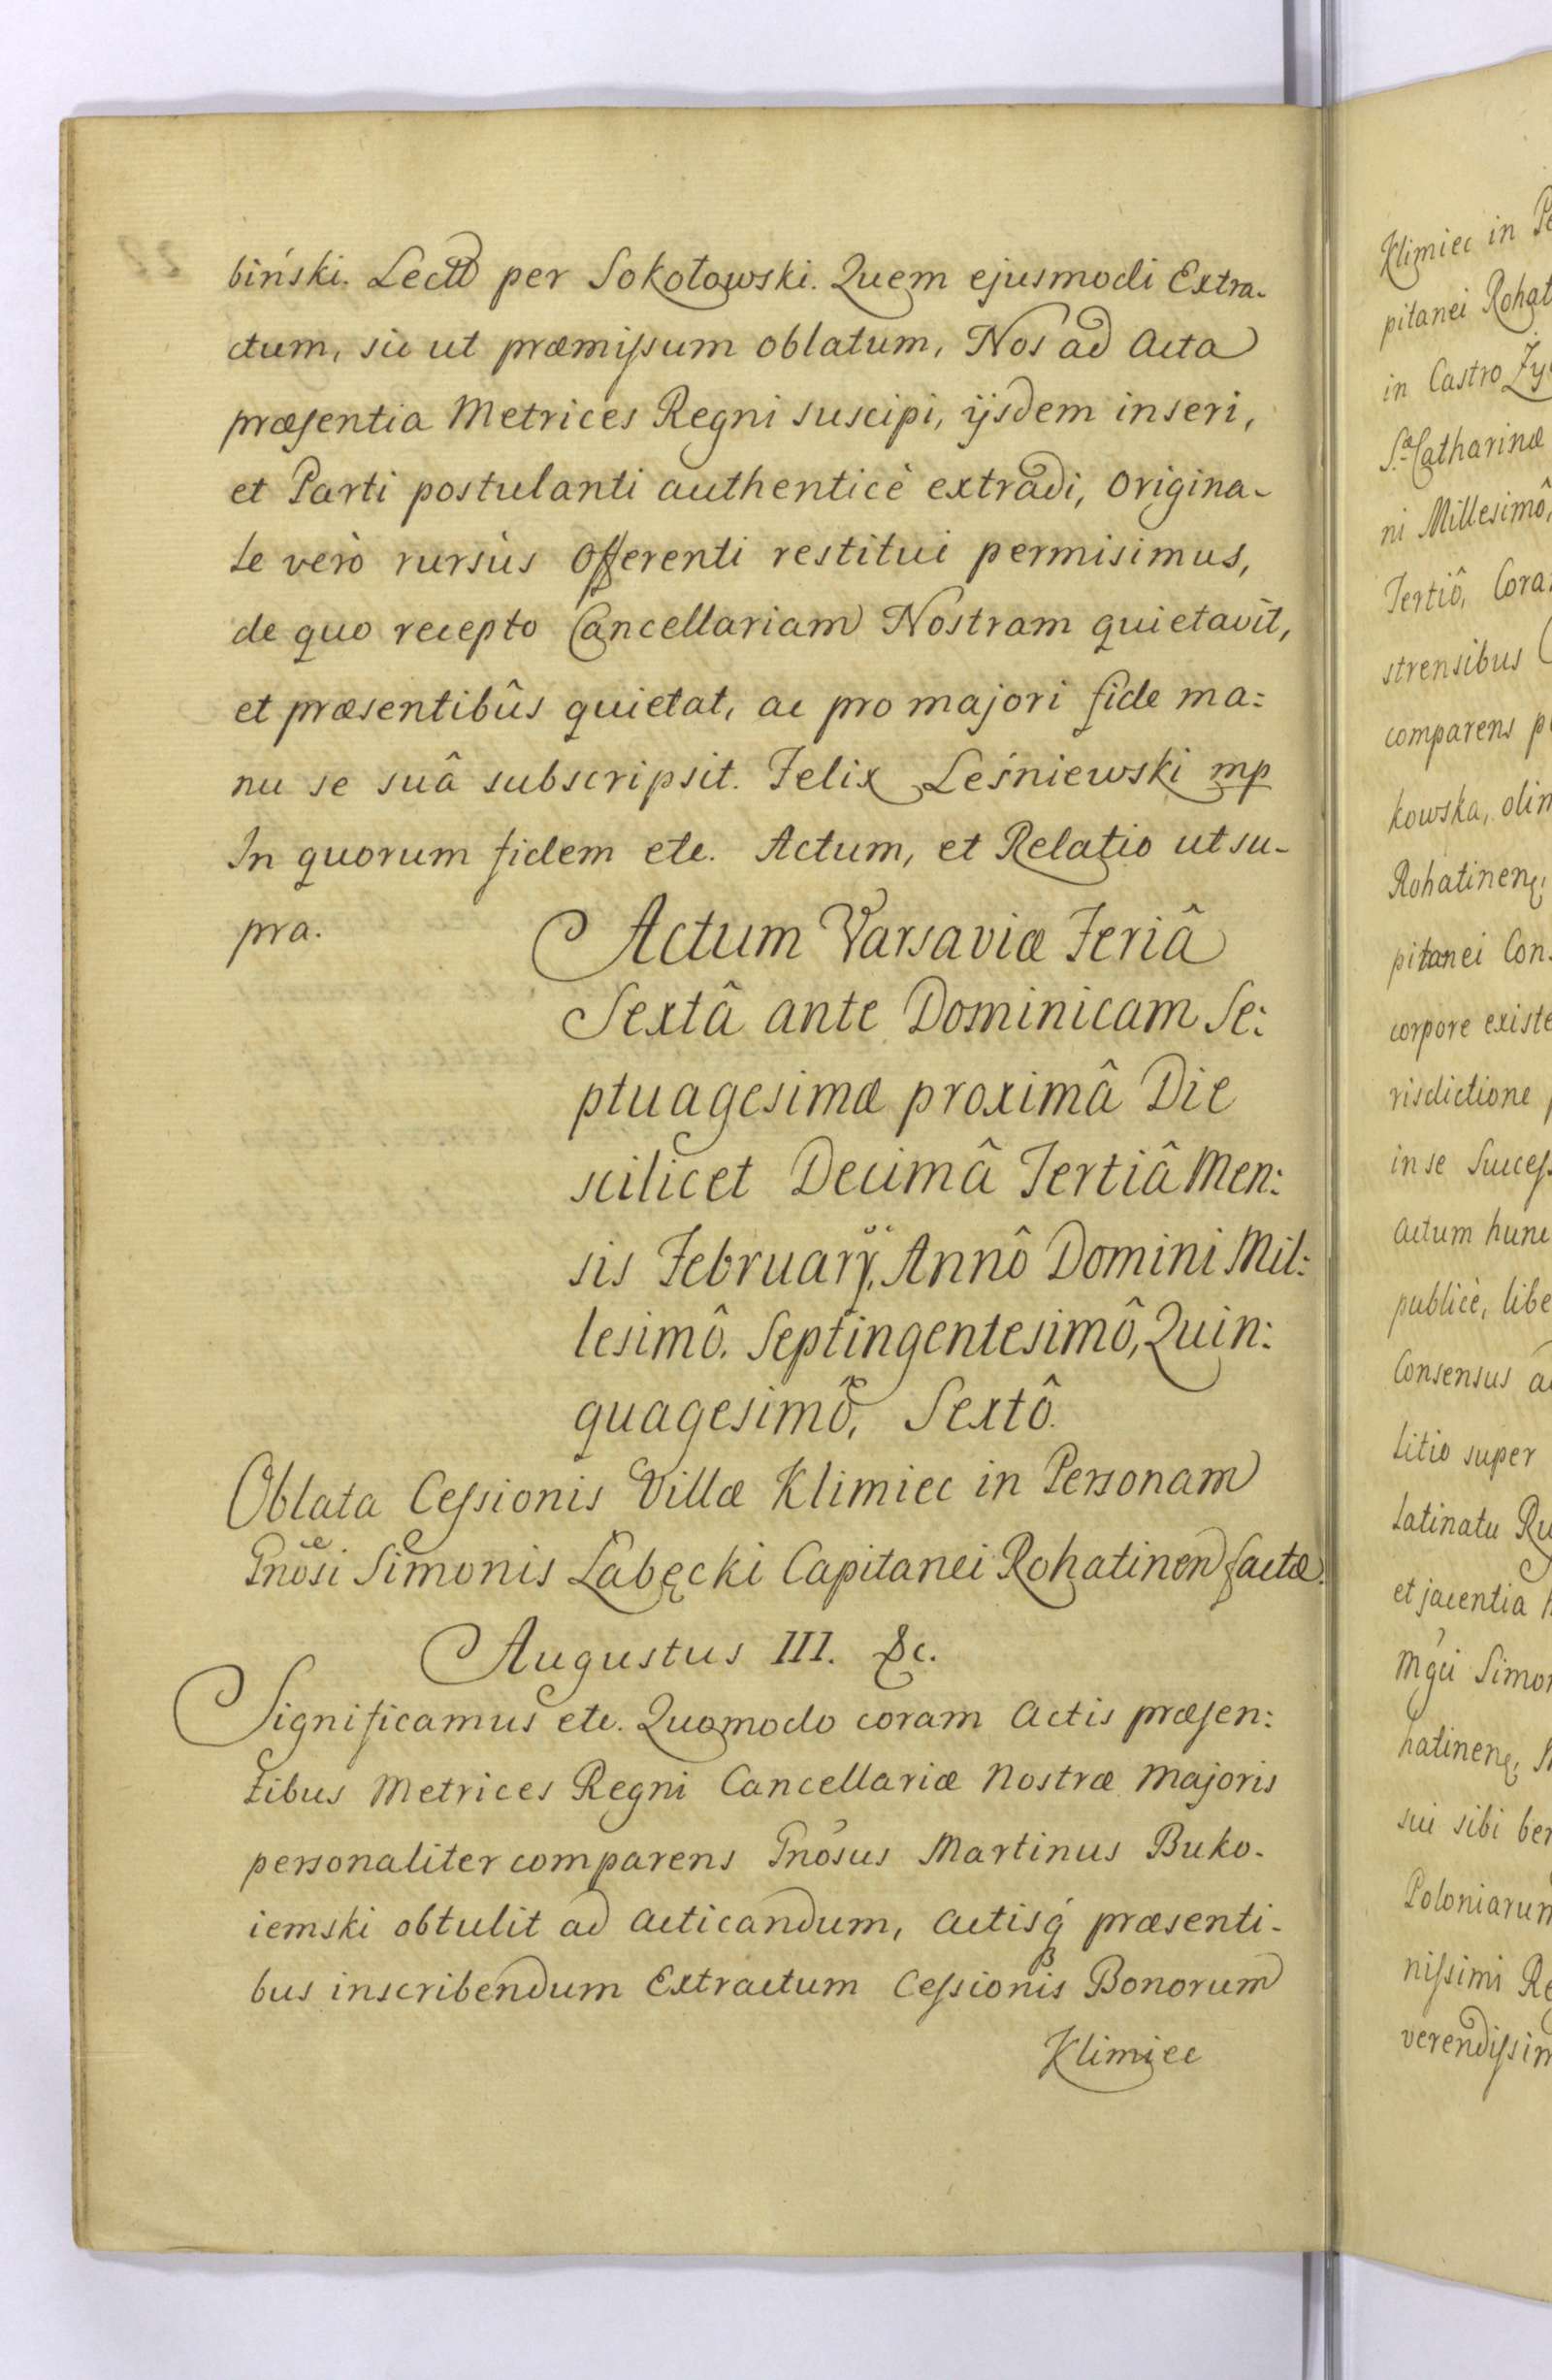 biński. Lectt per Sokołowski. Quem ejusmodi Extra-
ctum, sic ut præmissum oblatum, Nos ad Acta
præsentia Metrices Regni suscipi, ijsdem inseri,
et Parti postulanti authenticè extradi, Origina-
le verò rursùs Offerenti restitui permisimus,
de quo recepto Cancellariam Nostram quietavit,
et præsentibûs quietat, ac pro majori fide ma:
nu se suâ subscripsit. Felix Leśniewski mp
In quorum fidem etc. Actum, et Relatio ut su-
pra.
Actum Varsaviæ Feriâ
Sextâ ante Dominicam Se:
ptuagesimæ proximâ Die
scilicet Decimâ Tertiâ Men:
sis Februarÿ, Annô Domini Mil:
lesimô, Septingentesimô, Quin:
quagesimô, Sextô.
Oblata Cessionis Villæ Klimiec in Personam
Gnosi Simonis Łabęcki Capitanei Rohatinen factæ.
Augustus III. &c.
Significamus etc. Quomodo coram Actis præsen:
tibus Metrices Regni Cancellariæ Nostræ Majoris
personaliter comparens Gnosus Martinus Buko-
iemski obtulit ad acticandum, actisq́ præsenti-
bus inscribendum Extractum Cessionis Bonorum
Klimiec
Klimiec in
pitanei Rohat
in Castro
S. Catharinæ
ni Millesimô,
Tertiô, Cora
strensibus
comparens
kowska, olim
Rohatinen,
pitanei Con
corpore existe
risdictione
in se Success
actum hunc
publicè, libe
Consensus
litio super
latinatu
et jacentia
Mgci Simon
hatinen,
sui sibi
Poloniarum
nissimi
verendissim